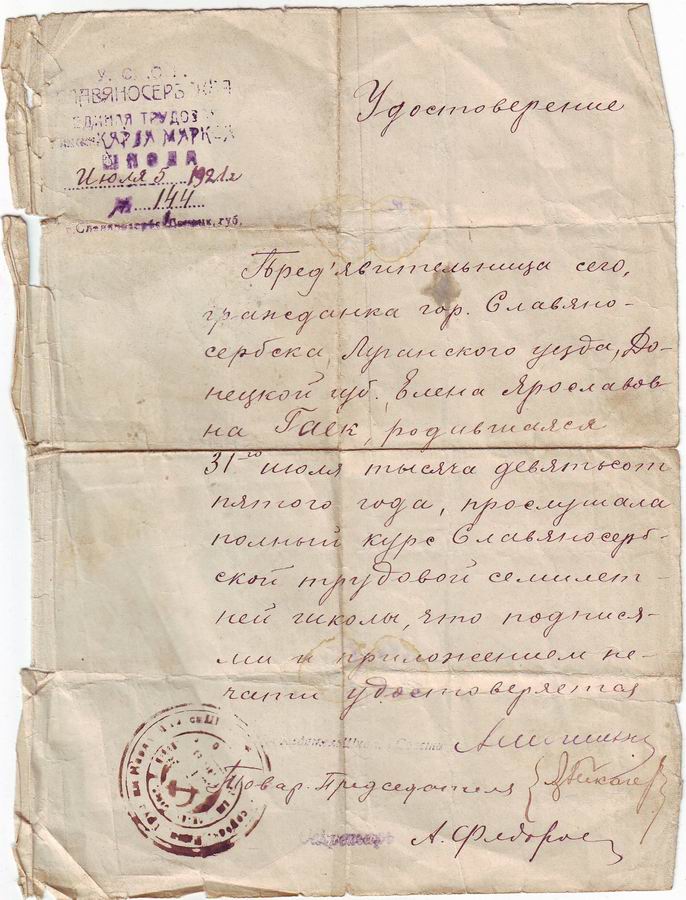 СЛАВЯНОСЕРБСКАЯ
ЕДИНАЯ ТРУДОВ
КАРЛА МАРКСА
ШКОЛА
Июля 5 1921 г
№ 144
г. Славяносербск, Донецк. губ.
Удостоверение
Пред'явительница сего,
гражданка гор. Славяно-
сербска, Луганского уезда, До-
нецкой губ., Елена Ярославов
на Гаек, родившаяся
31-го июля тысяча девятьсот
пятого года, прослушала
полный курс Славяносерб-
ской трудовой семилет-
ней школы, что подпися-
ми и приложением пе-
чати удостоверяется
Товар. Председателя
Секретарь